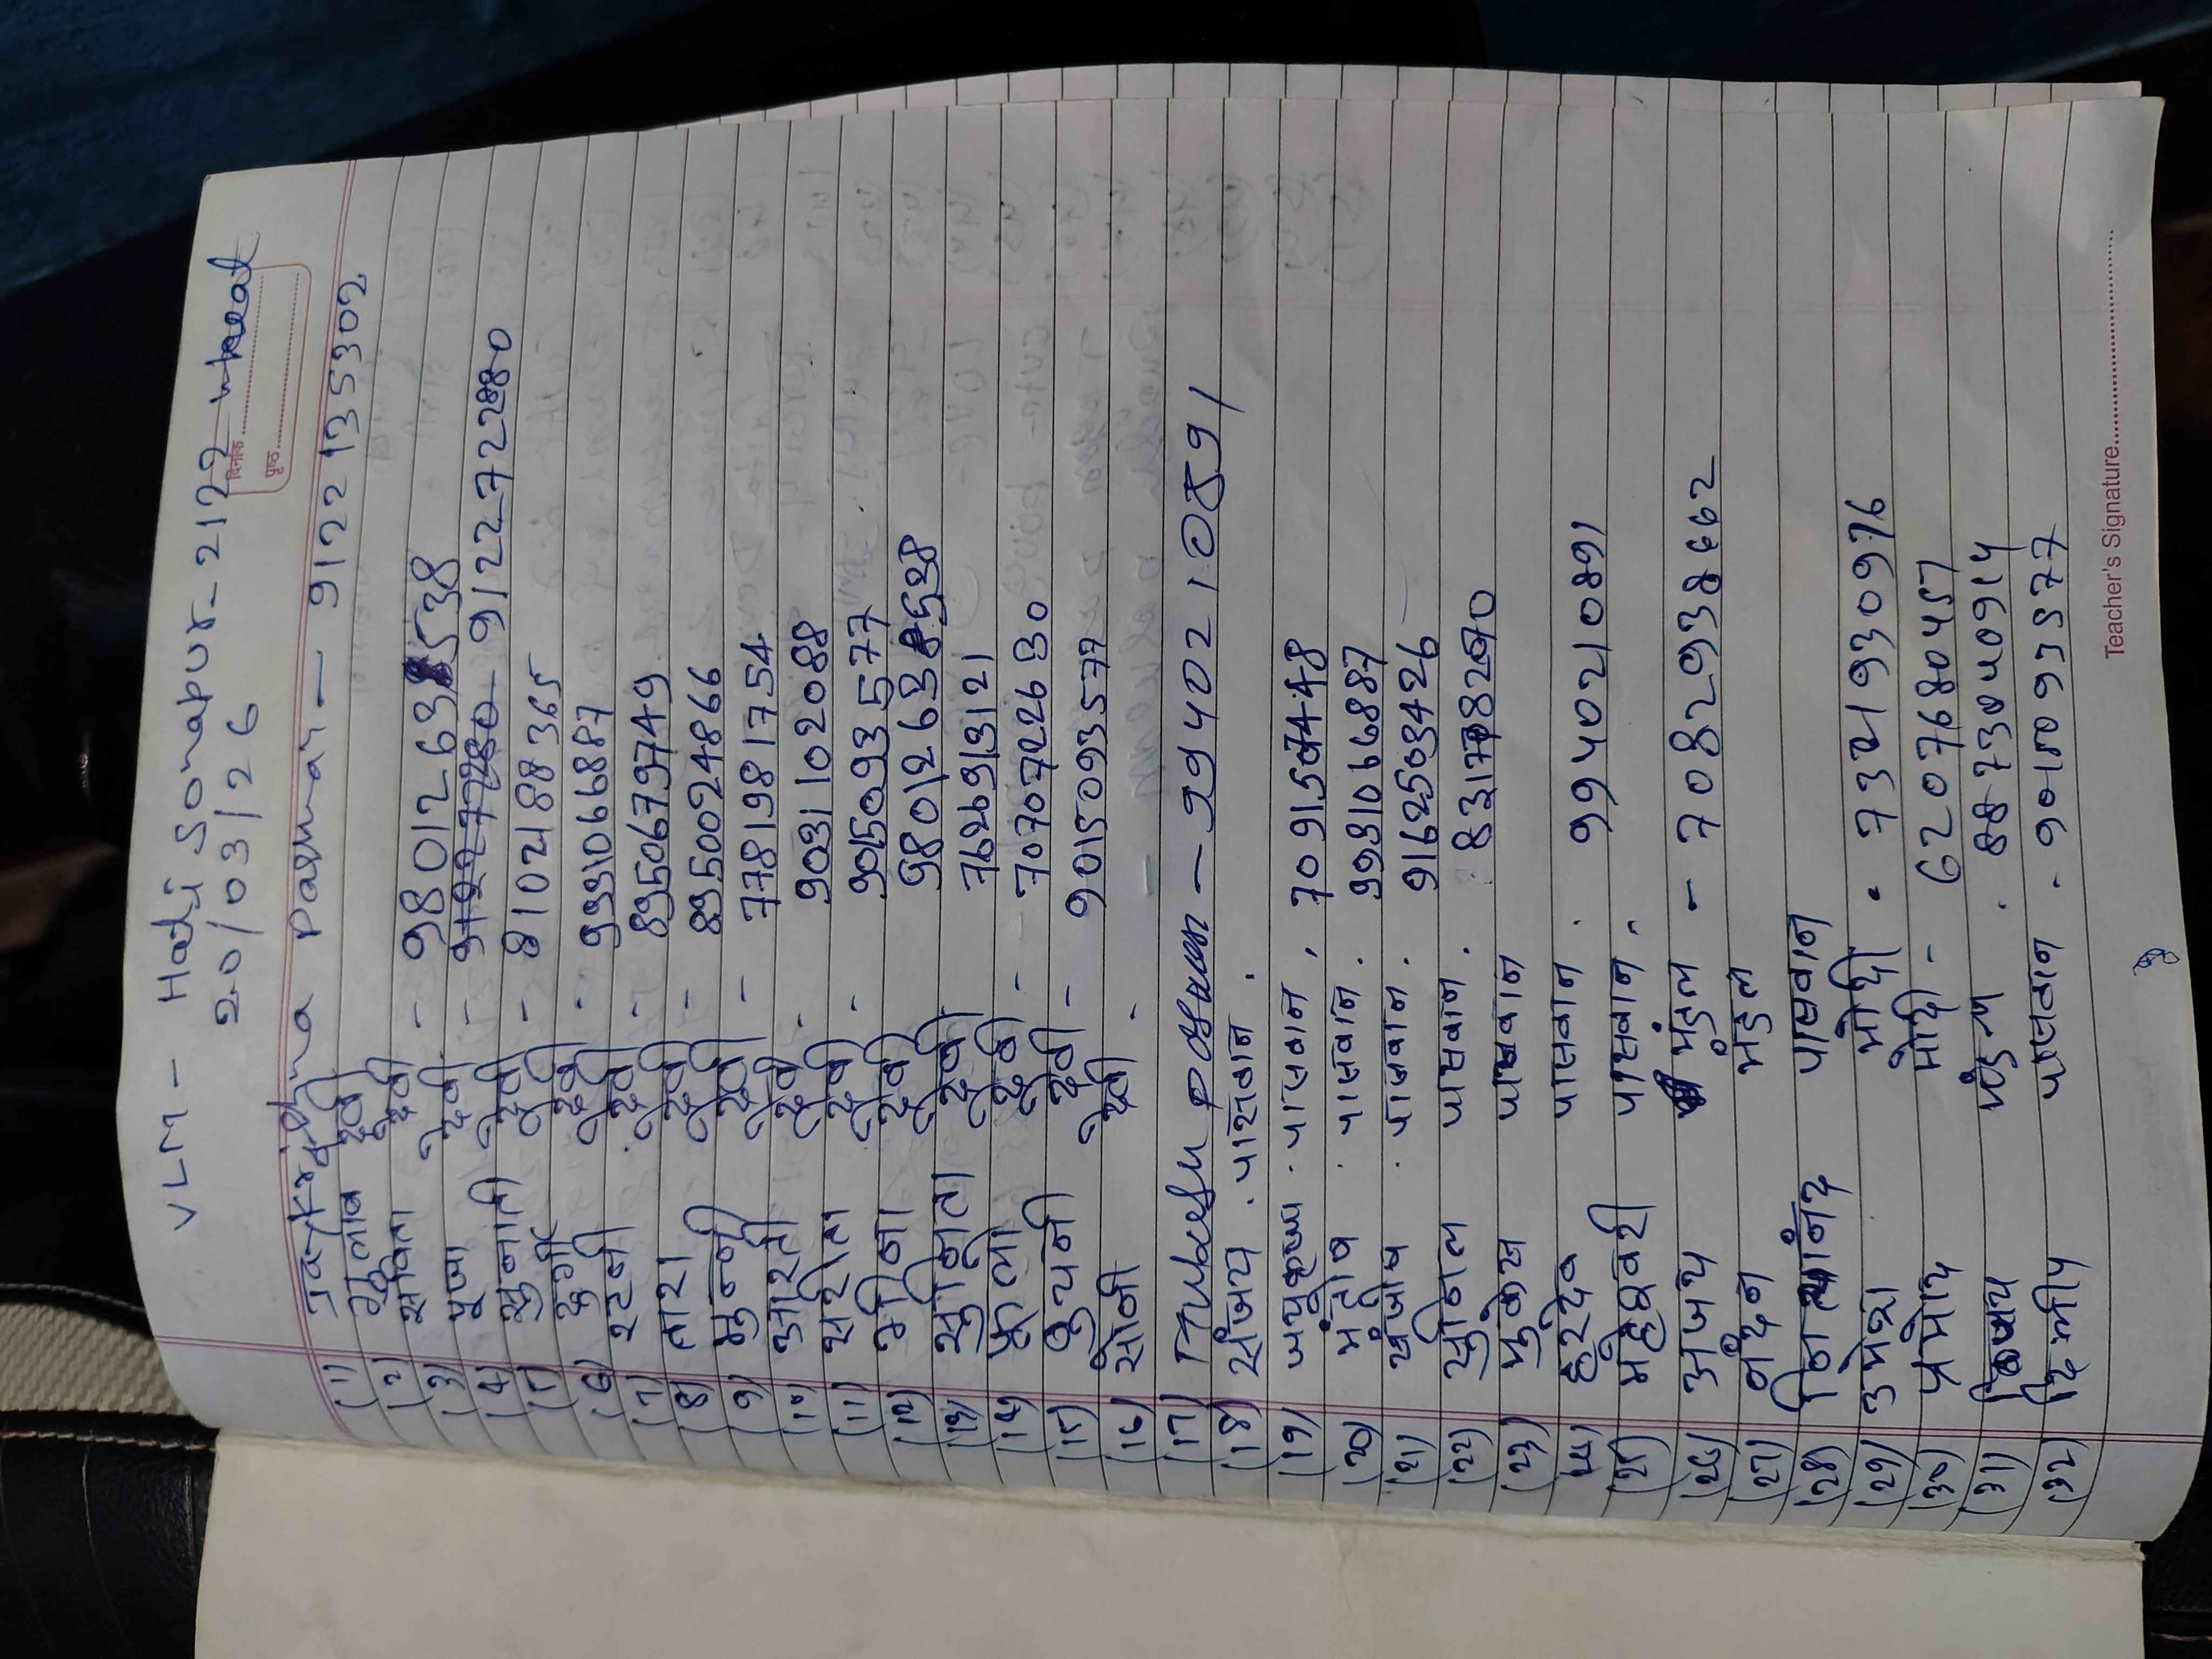 VLM - Hati Sonapur - 2122 wheat
20/03/26
दिनांक
पृष्ठ
Jaykrishna Paswan - 9122135302
(1) गुलाब देवी
(2) सविता देवी - 9801263538
(3) पूजा देवी - 9122727280 9122272280
(4) सुनाती देवी - 8102188365
(5) दुर्गी देवी - 9931066887
(6) रटनी देवी - 8950679749
(7) तारा देवी - 8950024866
(8) मुन्नी देवी - 7781981754
(9) आरती देवी - 9031102088
(10) सरिता देवी - 9015093577
(11) मीना देवी 9801263538
(12) सुनिता देवी 7626913121
(13) फुला देवी - 7070722630
(14) बुधनी देवी - 9015093577
(15) सोनी देवी -
(16)
(17) Mukesh paswan - 9940210891
(18) संजय . पासवान .
(19) जयकृष्ण . पासवान . 7091574448
(20) मंतोष . पासवान . 9931066887
(21) संतोष . पासवान . 9162563426
(22) सुनिल पासवान . 8317782970
(23) मुकेश पासवान
(24) हरदेव पासवान . 9940210891
(25) महेश्वरी पासवान .
(26) अजय मंडल - 7082938662
(27) नंदन मंडल
(28) नित्यानंद पासवान
(29) उमेश मोदी . 7321930976
(30) प्रमोद मोदी - 6207680457
(31) विजय मंडल . 8873040914
(32) दिलीप पासवान . 9015093577
Teacher's Signature